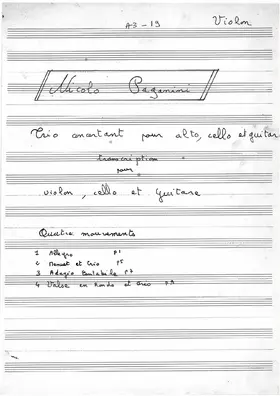 A3 - 19
Violon
Nicolo Paganini
Trio concertant pour alto, cello et guitar
transcription
pour
violon, cello et guitare
Quatre mouvements
1 Allegro p1
2 Menuet et trio p5
3 Adagio Cantabile p7
4 Valse en Rondo et trio p9